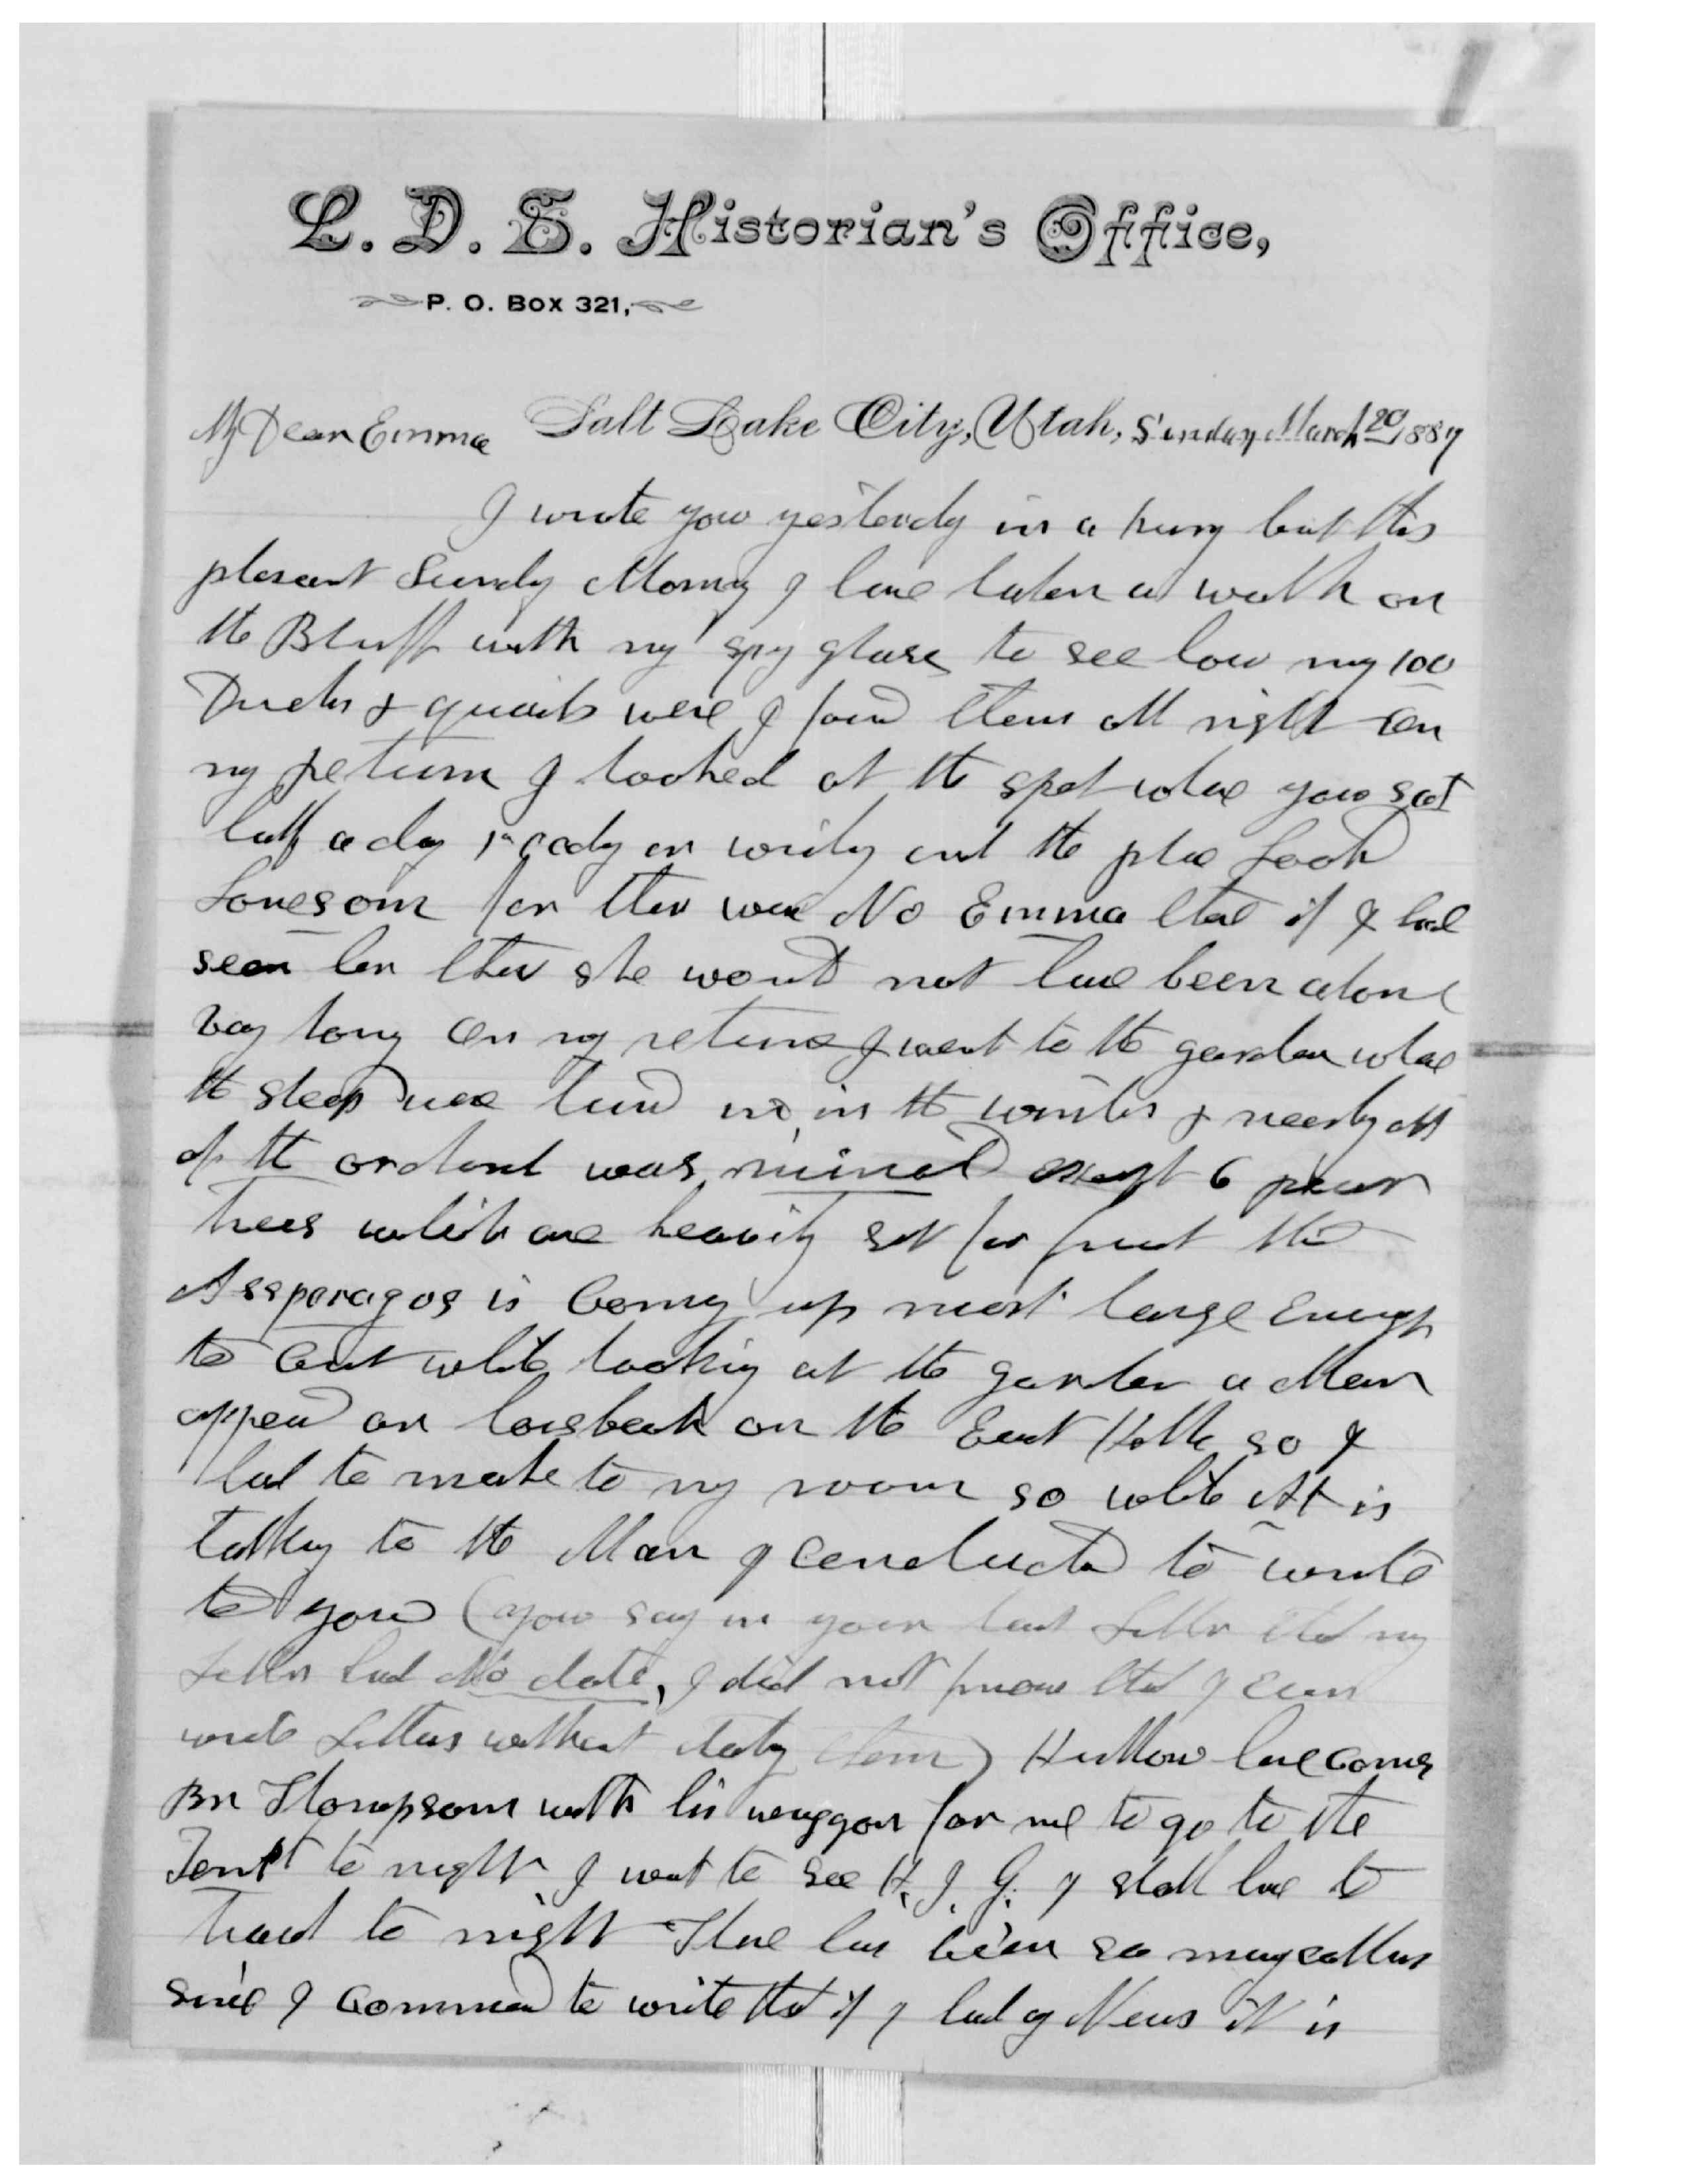 L. D. S. Historian's Office,
P. O. Box 321,
My Dear Emma Salt Lake City, Utah, Sunday March 20 1887
I wrote you yesterdy in a hury but this
plesant Sundy Morng I have taken a walk on
the Bluff with my spy glass to see how my 100
Ducks & quails were I found them all right on
my return I looked at the spot whare you sat
half a day reading or writing and the place Lookd
Lonesom for ther was No Emma thare if I had
seen her thare she would not have been alone
vary long On my return I went to the garden whare
the sheep was turnd in, in the winter & nearly all
of the orchard was ruined except 6 pear
trees which are heavily set for fruit the
Assparagos is Comng up most large Enough
to Cut while looking at the garden a Man
appeard on horsback on the East Hills so I
had to make to my room so while At is
talking to the Man I concluded to write
to you (you say in your last Letter that my
Letter had No date, I did not know that I Ever
wrote Letters without dating them) Hullow hare comes
Br Thompson with his waggon for me to go to the
Tempt to night I want to see H. J. G. I shall have to
travel to night Thare has been so many callers
since I Commencd to write that if I had any News it is